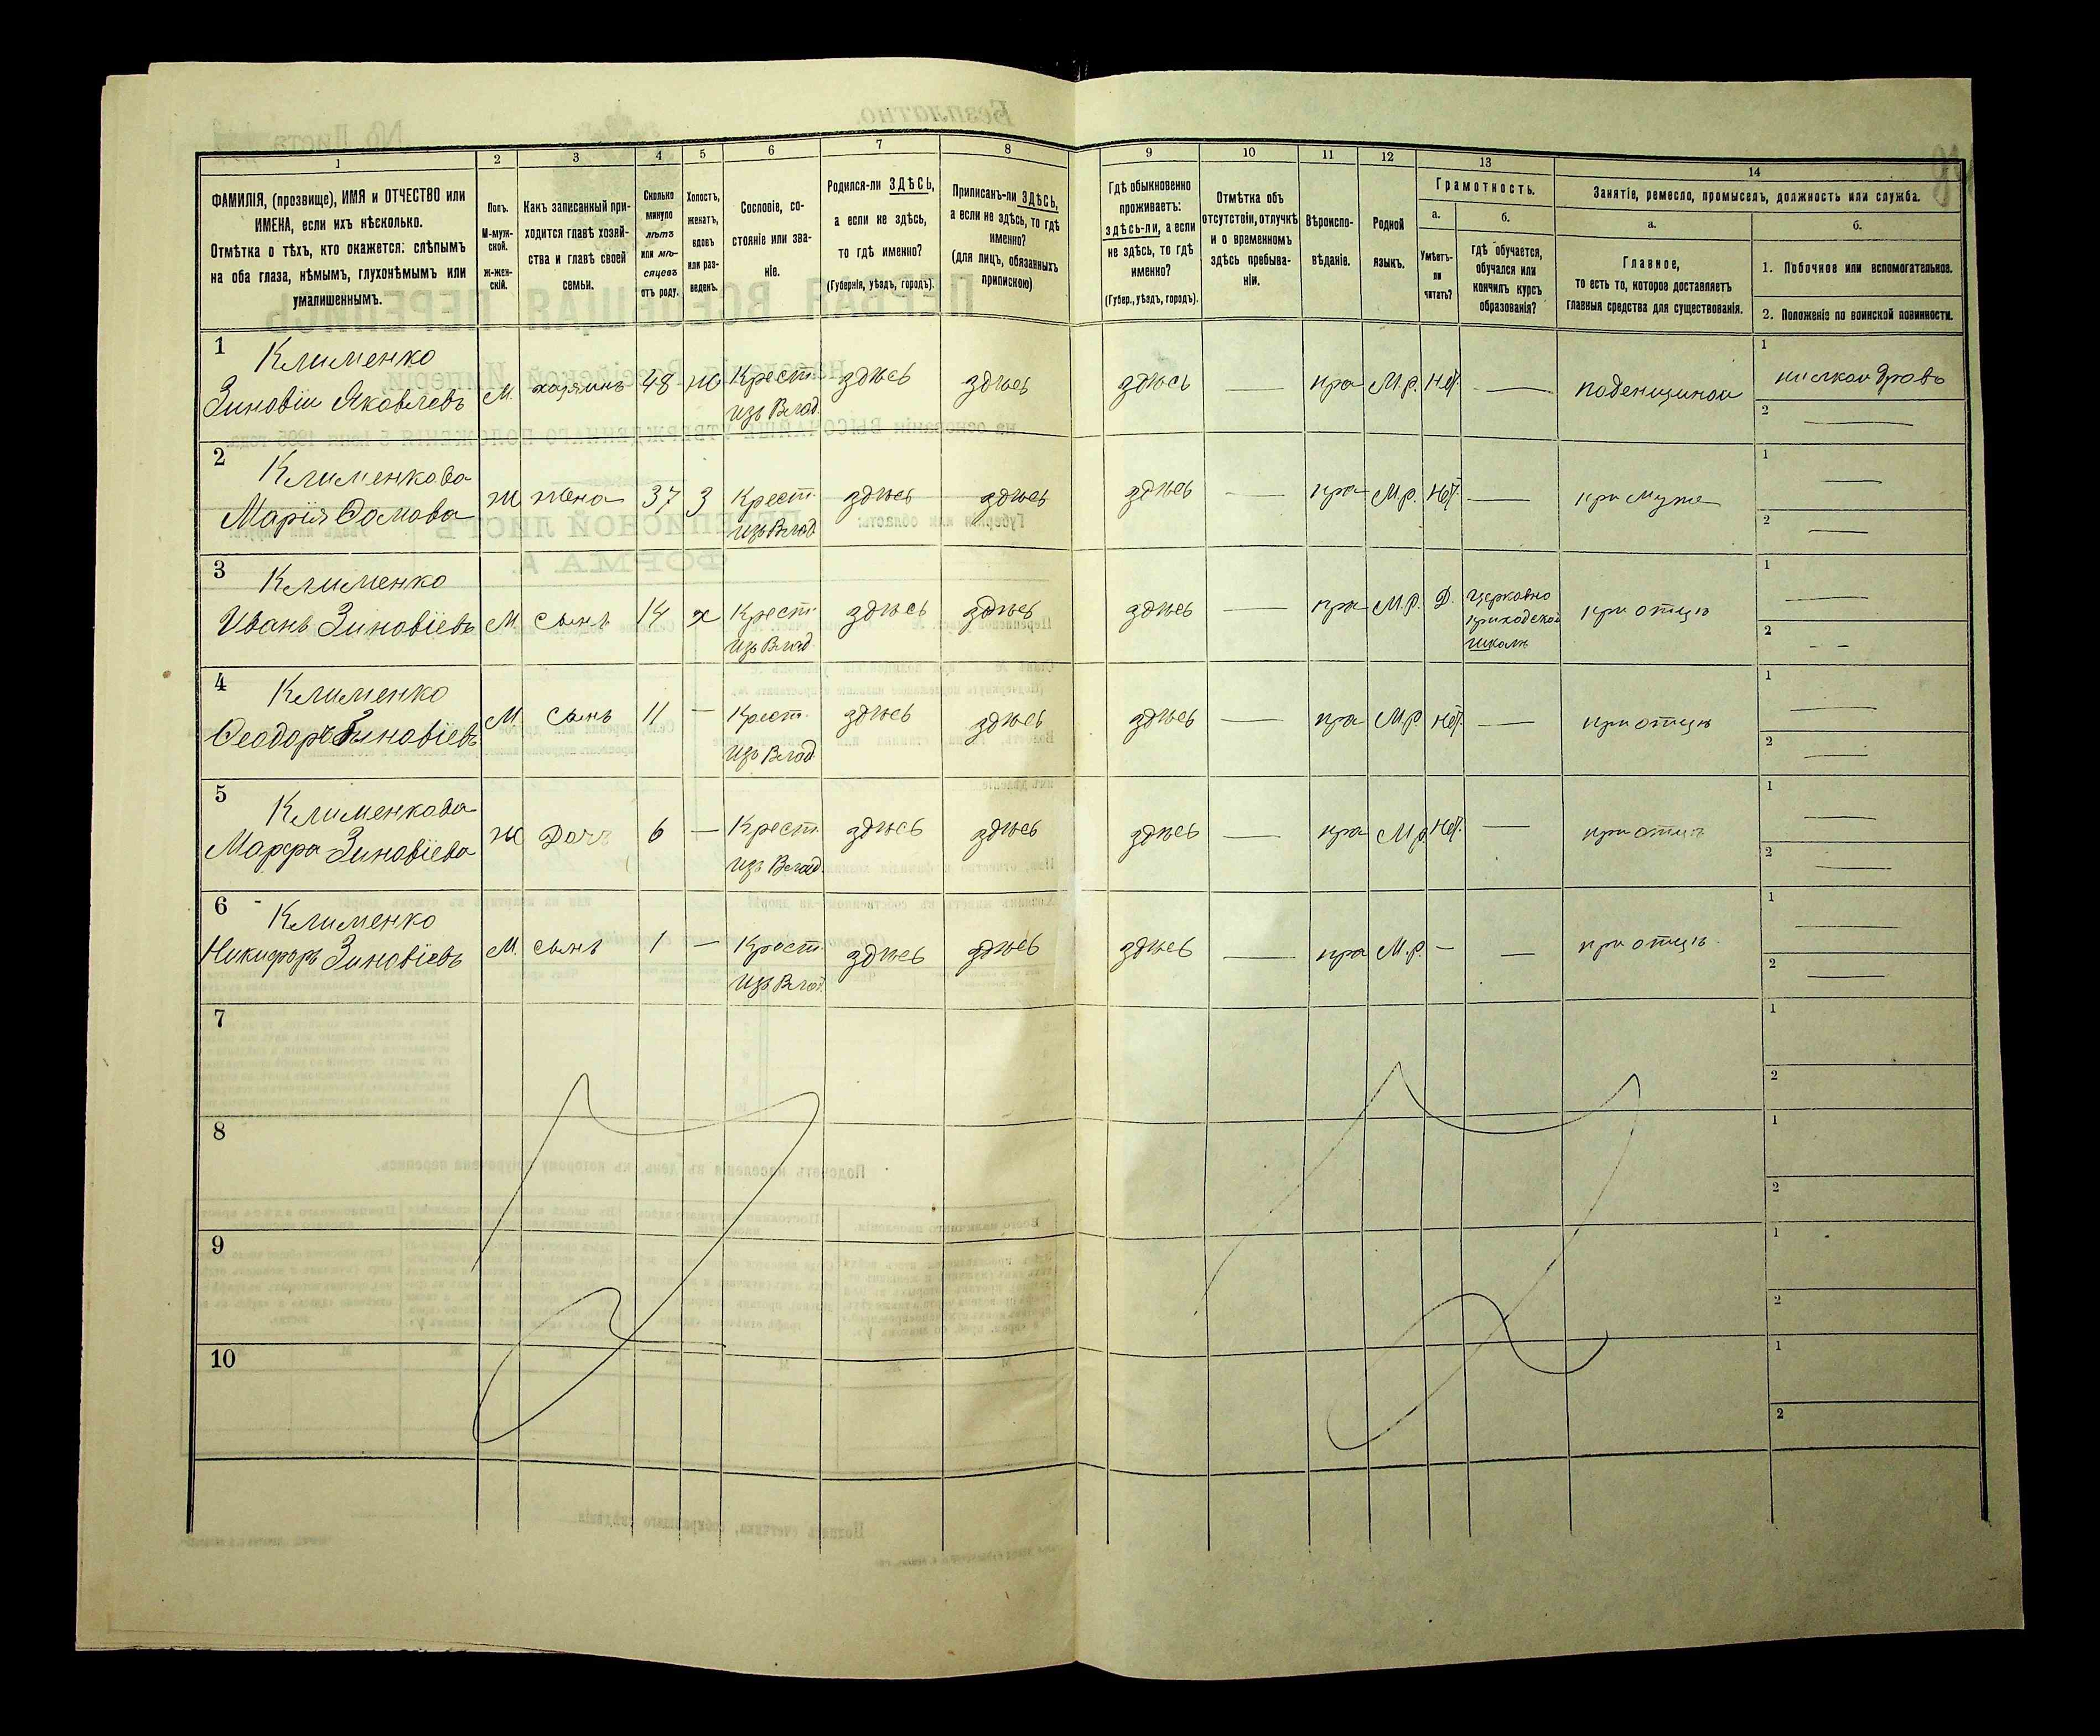 Безплатно.
№ Листа
1 2 3 4 5 6 7 8 9 10 11 12 13 14
ФАМИЛІЯ, (прозвище), ИМЯ и ОТЧЕСТВО или
ИМЕНА, если ихъ нѣсколько.
Отмѣтка о тѣхъ, кто окажется: слѣпымъ
на оба глаза, нѣмымъ, глухонѣмымъ или
умалишеннымъ.
Полъ.
М-муж-
ской.
Ж-жен-
скій.
Какъ записанный при-
ходится главѣ хозяй-
ства и главѣ своей
семьи.
Сколько
минуло
лѣтъ
или мѣ-
сяцевъ
отъ роду.
Холостъ,
женатъ,
вдовъ
или раз-
веденъ.
Сословіе, со-
стояніе или зва-
ніе.
Родился-ли ЗДѢСЬ,
а если не здѣсь,
то гдѣ именно?
(Губернія, уѣздъ, городъ).
Приписанъ-ли ЗДѢСЬ,
а если не здѣсь, то гдѣ
именно?
(для лицъ, обязанныхъ
припискою)
Гдѣ обыкновенно
проживаетъ:
здѣсь-ли, а если
не здѣсь, то гдѣ
именно?
(Губер., уѣздъ, городъ).
Отмѣтка объ
отсутствіи, отлучкѣ
и о временномъ
здѣсь пребыва-
ніи.
Вѣроиспо-
вѣданіе.
Родной
языкъ.
Грамотность.
а.
Умѣетъ-
ли
читать?
б.
гдѣ обучается,
обучался или
кончилъ курсъ
образованія?
Занятіе, ремесло, промыселъ, должность или служба.
а.
Главное,
то есть то, которое доставляетъ
главныя средства для существованія.
б.
1. Побочное или вспомогательное.
2. Положеніе по воинской повинности.
1 Клименко
Зиновіи Яковлевъ М. хозяинъ 48 Ж Крест. изъ Влад. здѣсь здѣсь здѣсь — пра М.р. Нѣт. — поденщикои
1
2 —
2 Клименкова
Марія Ѳомова Ж жена 37 З Крест. изъ Влад здѣсь здѣсь здѣсь — пра М.р. Нѣт. — при мужѣ
1 —
2 —
3 Клименко
Иванъ Зиновіевъ М сынъ 14 х Крест. изъ Влад. здѣсь здѣсь здѣсь — пра М.р. Д. Церковно
приходской
школѣ
при отцѣ
1 —
2 - -
4 Клименко
Ѳеодоръ Зиновіевъ М. сынъ 11 — Крест. изъ Влад. здѣсь здѣсь здѣсь — пра М.р. Нѣт. — при отцѣ
1 —
2 —
5 Клименкова
Марфа Зиновіева Ж Дочь 6 — Крест. изъ Влад. здѣсь здѣсь здѣсь — пра М.р. Нѣт. — при отцѣ
1 —
2 —
6 Клименко
Никифоръ Зиновіевъ М. сынъ 1 — Крест. изъ Влад. здѣсь здѣсь здѣсь — пра М.р. — — при отцѣ
1 —
2 —
7
1
2
8
1
2
9
1
2
10
1
2